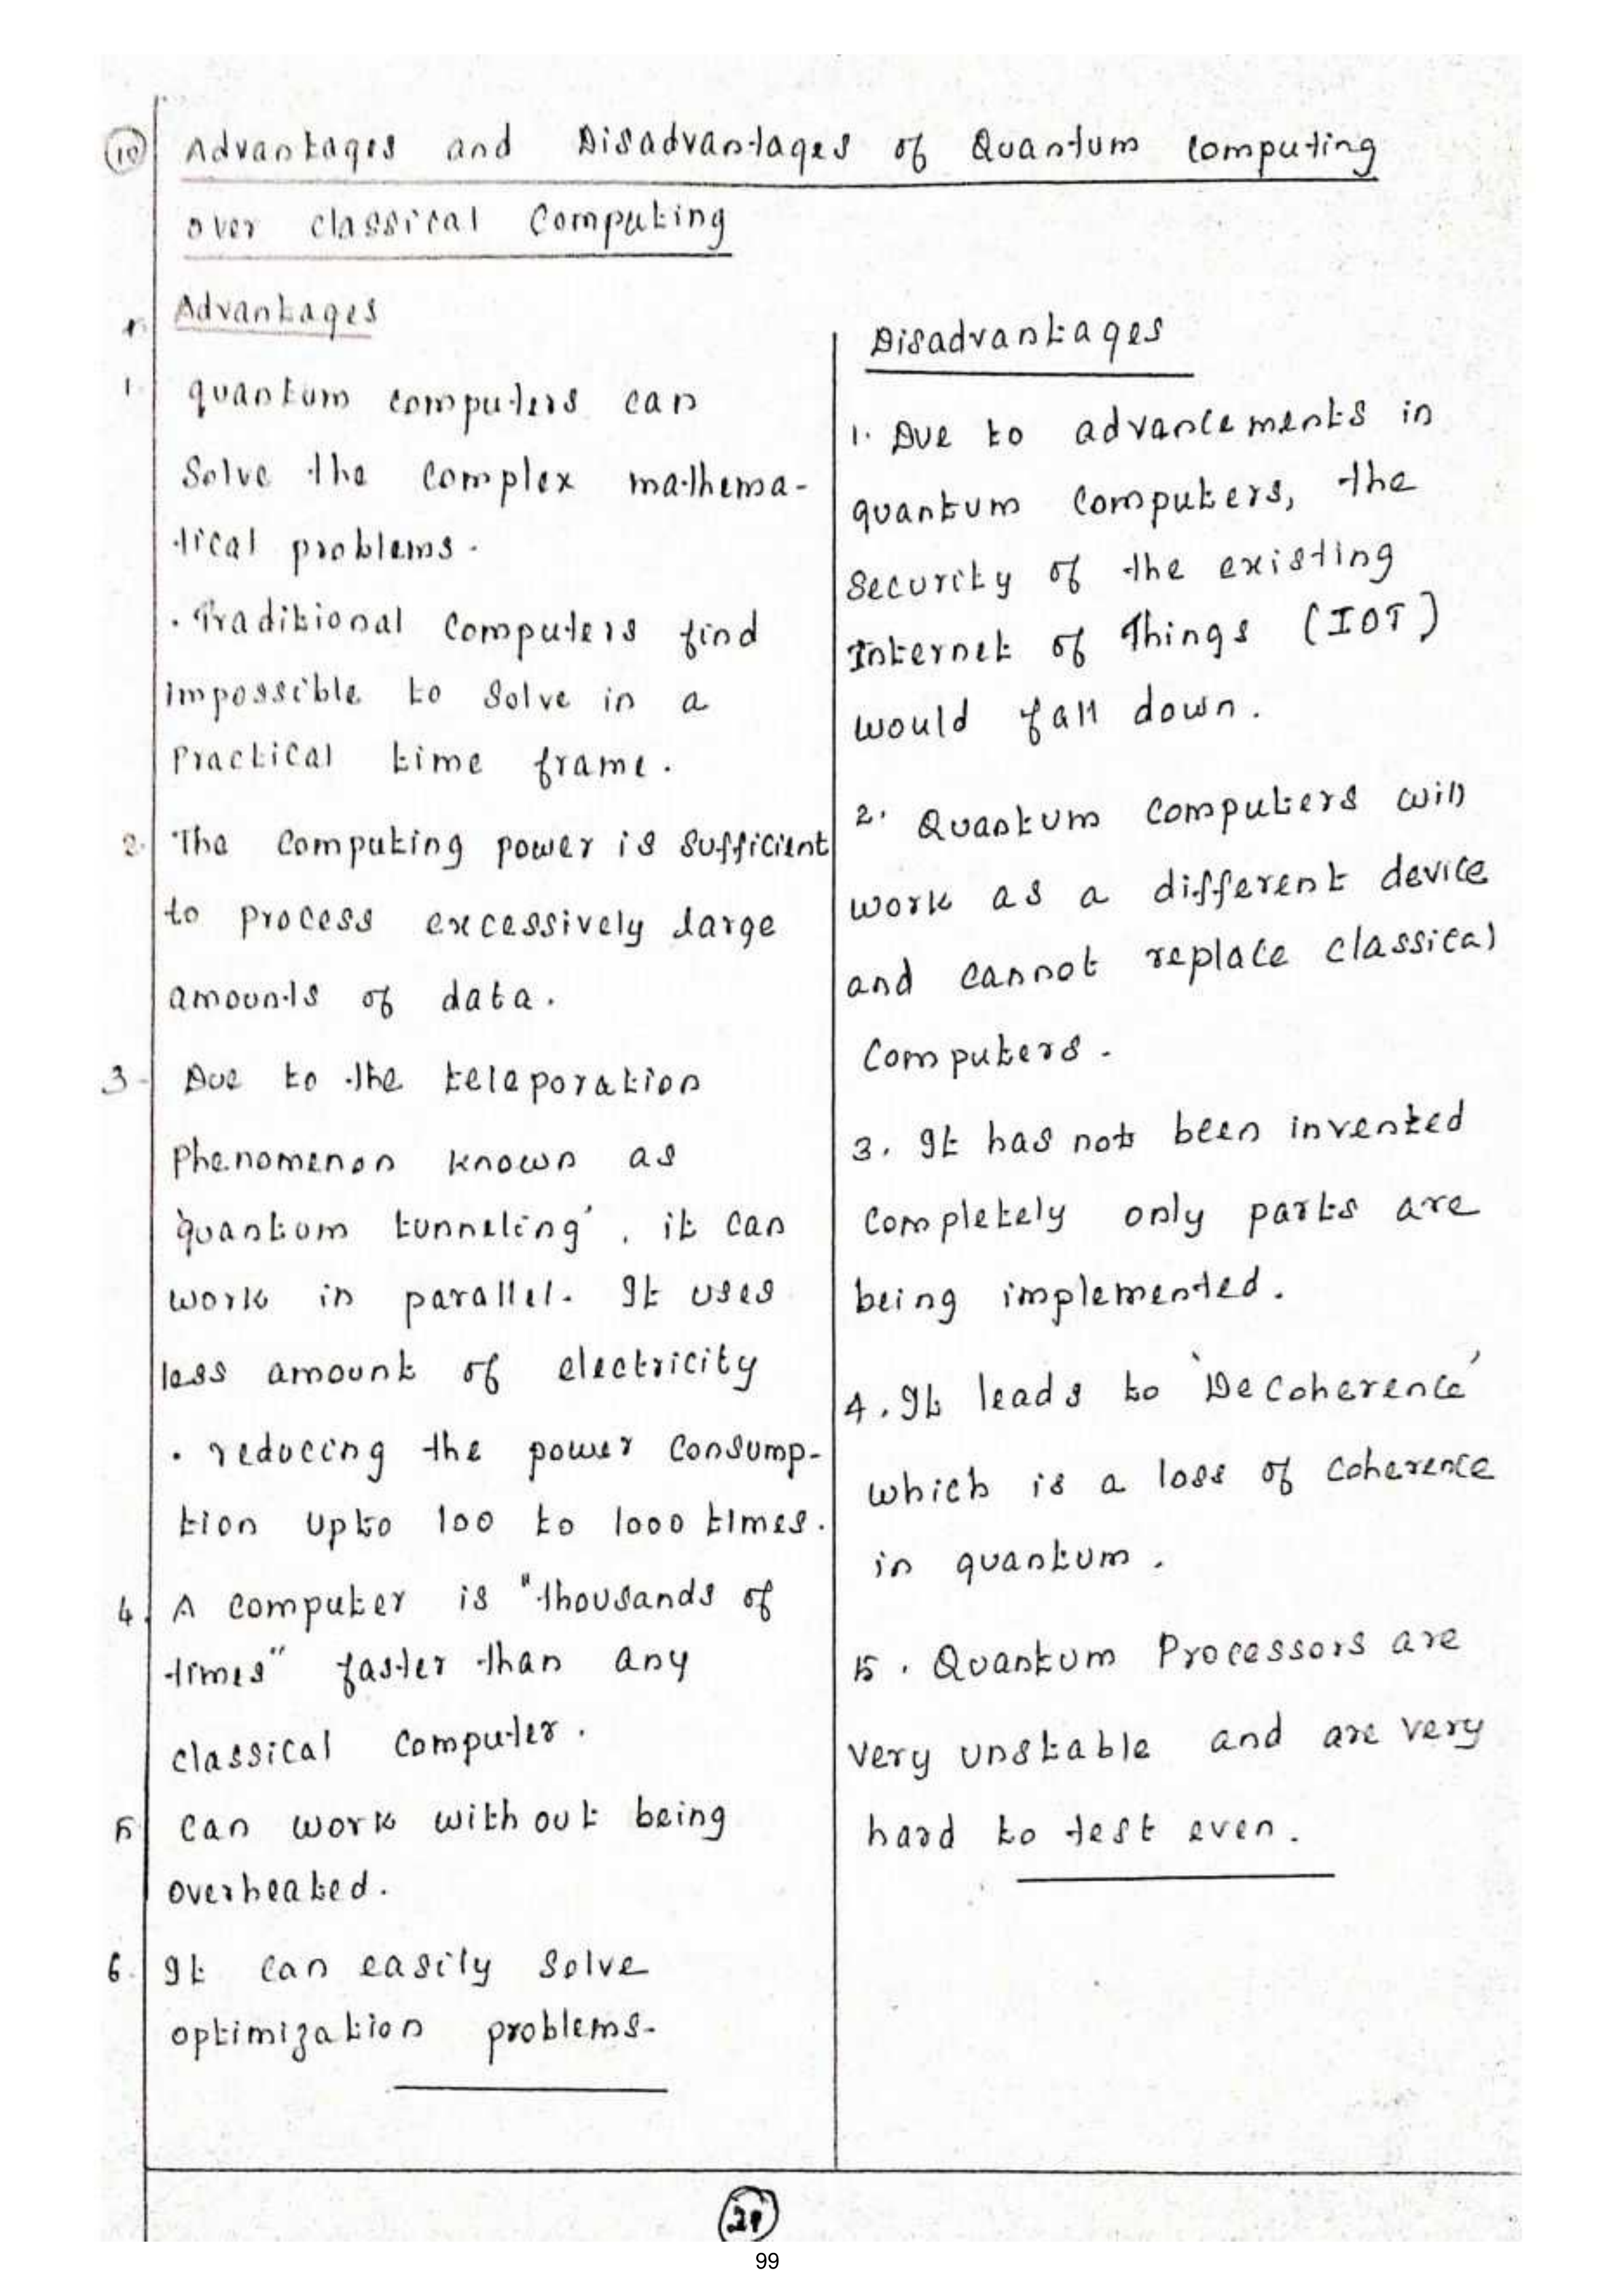 10 Advantages and Disadvantages of Quantum Computing
over classical Computing
Advantages
1. quantum computers can
Solve the complex mathema-
tical problems.
. Traditional Computers find
impossible to solve in a
Practical time frame.
2. The computing power is sufficient
to process excessively large
amounts of data.
3. Due to the teleporation
phenomenon known as
'quantum tunneling', it can
work in parallel. It uses
less amount of electricity
. reducing the power Consump-
tion upto 100 to 1000 times.
4. A computer is "thousands of
times" faster than any
classical computer.
5. can work without being
overheated.
6. It can easily solve
optimization problems.
Disadvantages
1. Due to advancements in
quantum computers, the
security of the existing
Internet of Things (IOT)
would fall down.
2. Quantum computers will
work as a different device
and cannot replace classical
Computers.
3. It has not been invented
completely only parts are
being implemented.
4. It leads to 'Decoherence'
which is a loss of coherence
in quantum.
5. Quantum Processors are
very unstable and are very
hard to test even.
99